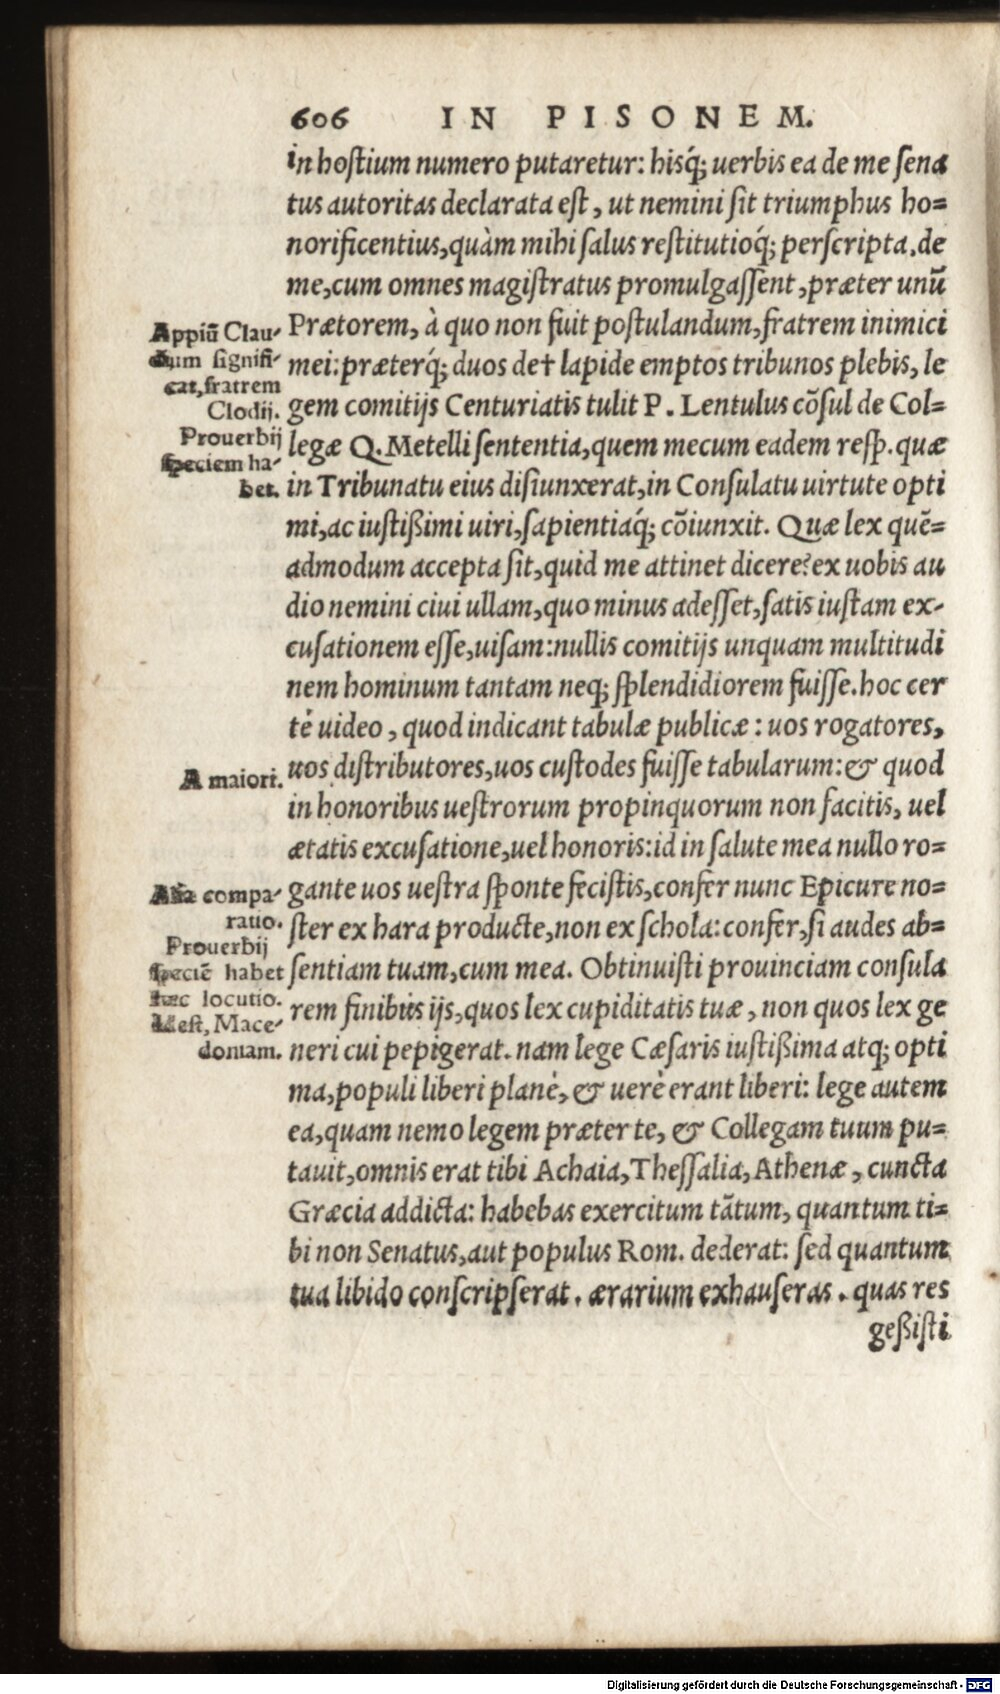 606 IN PISONEM.
in hoſtium numero putaretur: hisq́; uerbis ea de me ſena
tus autoritas declarata eſt, ut nemini ſit triumphus ho=
norificentius, quàm mihi ſalus reſtitutioq́; perſcripta. de
me, cum omnes magiſtratus promulgaſſent, præter unũ
Prætorem, à quo non fuit poſtulandum, fratrem inimici
mei: præterq́; duos de † lapide emptos tribunos plebis, le
gem comitijs Centuriatis tulit P. Lentulus cõſul de Col=
legæ Q. Metelli ſententia, quem mecum eadem reſp. quæ
in Tribunatu eius diſiunxerat, in Conſulatu uirtute opti
mi, ac iuſtißimi uiri, ſapientiaq́; cõiunxit. Quæ lex quẽ=
admodum accepta ſit, quid me attinet dicere? ex uobis au
dio nemini ciui ullam, quo minus adeſſet, ſatis iuſtam ex-
cuſationem eſſe, uiſam: nullis comitijs unquam multitudi
nem hominum tantam neq; ſplendidiorem fuiſſe. hoc cer
tè uideo, quod indicant tabulæ publicæ: uos rogatores,
uos diſtributores, uos cuſtodes fuiſſe tabularum: & quod
in honoribus ueſtrorum propinquorum non facitis, uel
ætatis excuſatione, uel honoris: id in ſalute mea nullo ro=
gante uos ueſtra ſponte feciſtis, confer nunc Epicure no=
ſter ex hara producte, non ex ſchola: confer, ſi audes ab=
ſentiam tuam, cum mea. Obtinuiſti prouinciam conſula
rem finibus ijs, quos lex cupiditatis tuæ, non quos lex ge
neri cui pepigerat. nam lege Cæſaris iuſtißima atq; opti
ma, populi liberi planè, & uerè erant liberi: lege autem
ea, quam nemo legem præter te, & Collegam tuum pu=
tauit, omnis erat tibi Achaia, Theſſalia, Athenæ, cuncta
Græcia addicta: habebas exercitum tãtum, quantum ti=
bi non Senatus, aut populus Rom. dederat: ſed quantum
tua libido conſcripſerat. ærarium exhauſeras. quas res
geßiſti
Appiũ Clau-
dium ſignifi-
cat, fratrem
Clodij.
Prouerbij
ſpeciem ha-
bet.
A maiori.
Alia compa-
ratio.
Prouerbij
ſpeciẽ habet
hæc locutio.
Id eſt, Mace-
doniam.
Digitalisierung gefördert durch die Deutsche Forschungsgemeinschaft - DFG